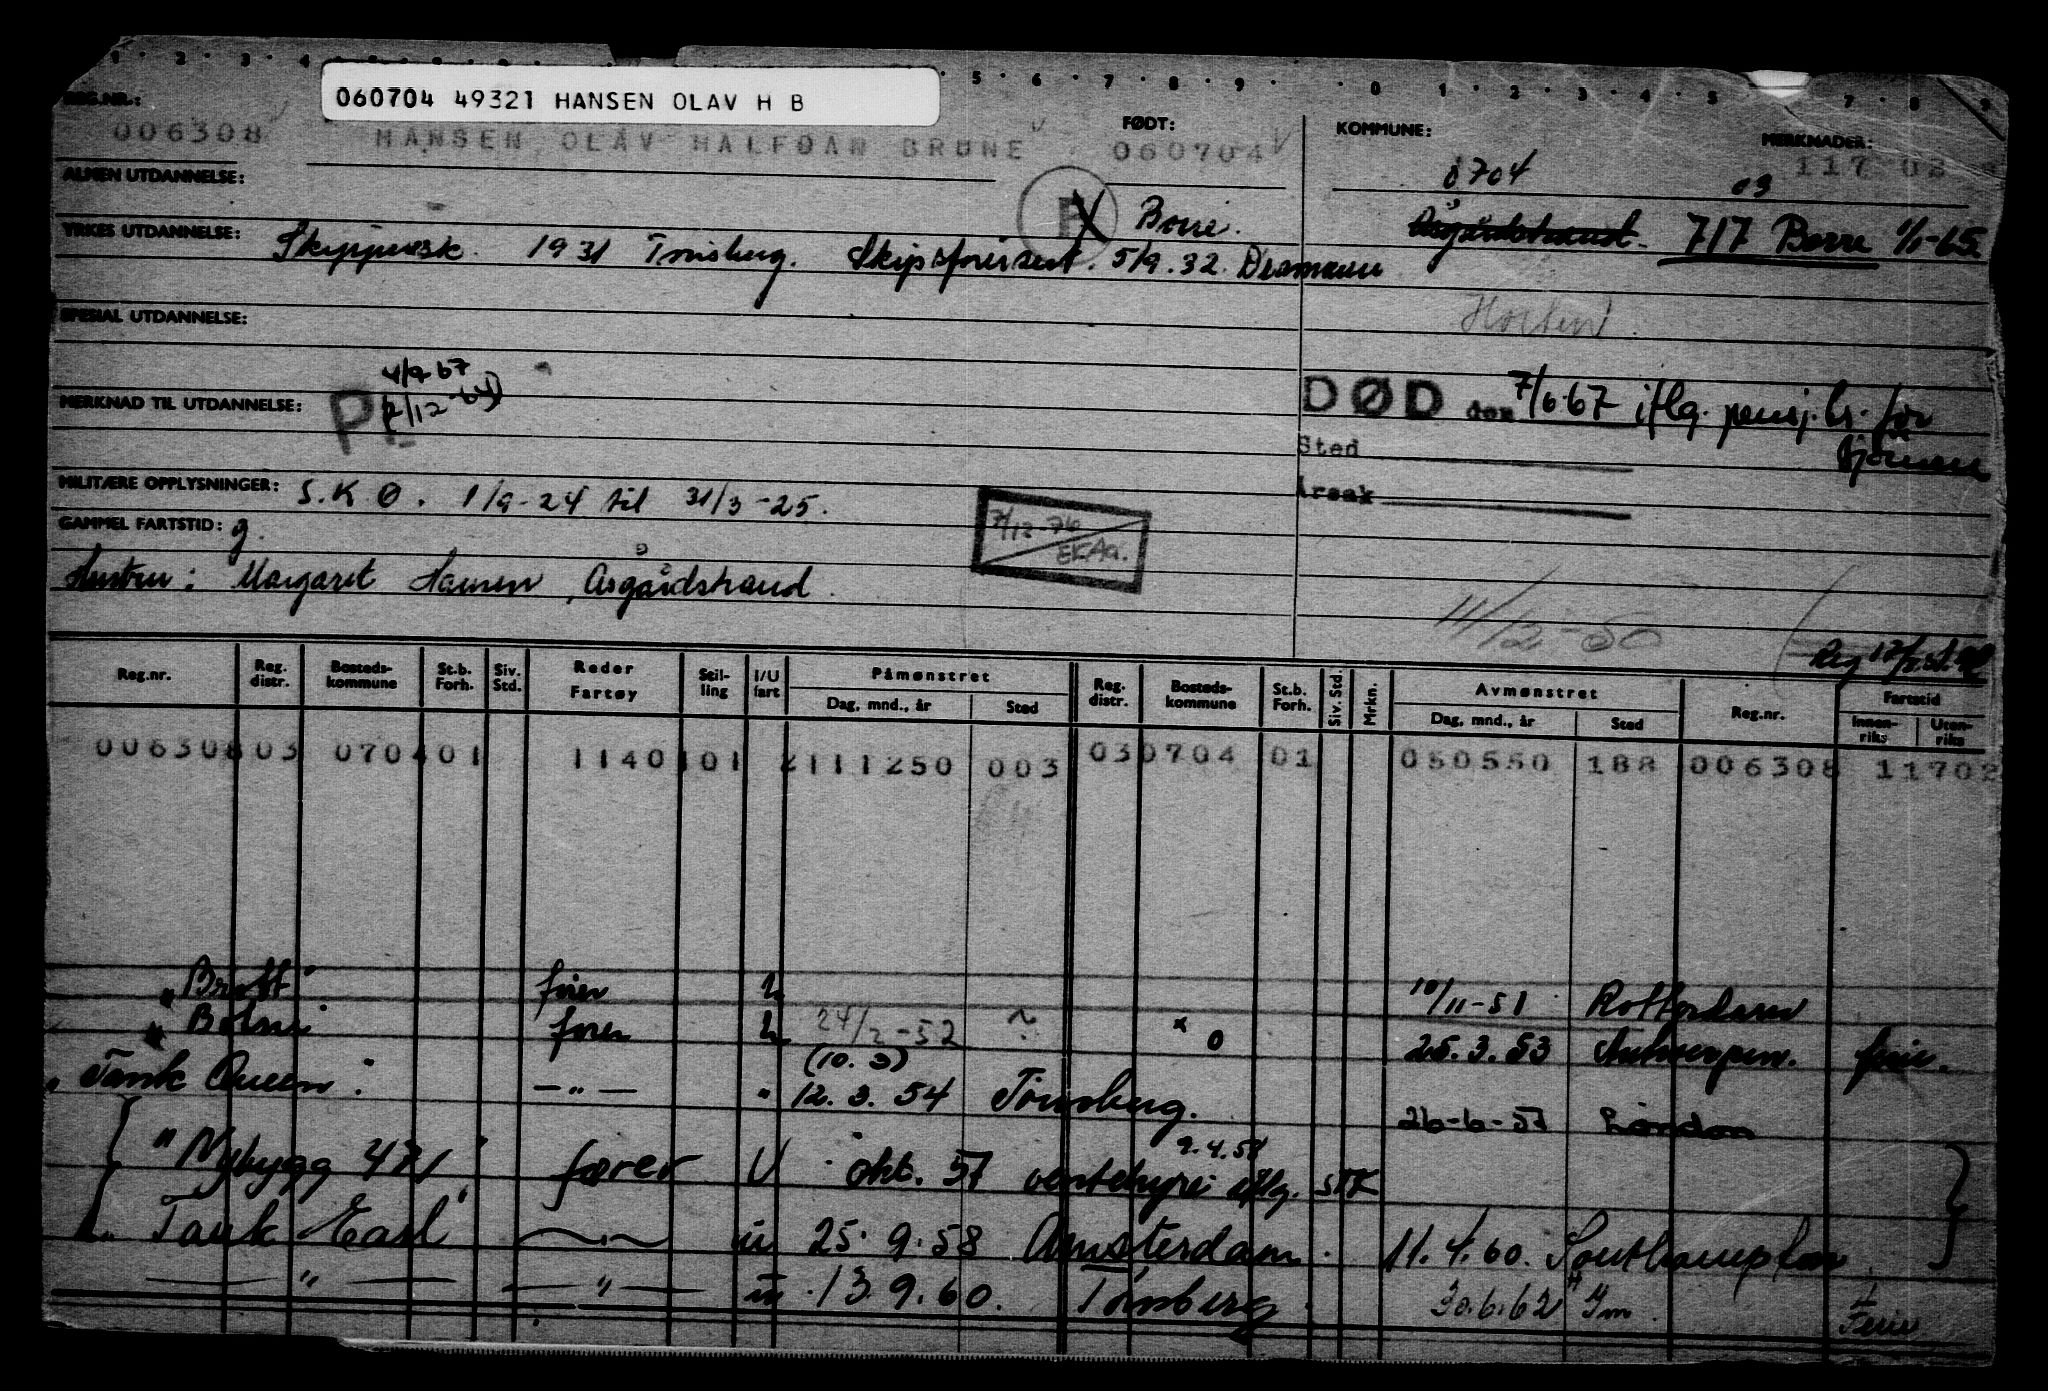 060704 49321 HANSEN OLAV H B
REG.NR.:
FØDT:
KOMMUNE:
MERKNADER:
006308 HANSEN OLAV HALFDAN BRUNE 060704 117 02
ALMEN UTDANNELSE:
0704 03
P Borre.
Åsgårdstrand. 717 Borre 1/1-65
YRKES UTDANNELSE: Skippersk. 1931 Tønsberg. Skipsførersert. 5/9.32 Drammen
SPESIAL UTDANNELSE:
Horten
4/9 67
MERKNAD TIL UTDANNELSE: P 2/12-64
DØD den 7/6-67 iflg. pensj. tr. for
sjømenn
Sted
Årsak
MILITÆRE OPPLYSNINGER: S.K.Ø. 1/9-24 til 31/3-25.
7/12-76
EKAa.
GAMMEL FARTSTID: g.
Hustru: Margaret Hansen, Åsgårdstrand.
11/2-50
Reg 17/
Reg.nr. Reg. distr. Bosteds-kommune St.b. Forh. Siv. Std. Reder Fartøy Stil-ling I/U fart Påmønstret Dag, mnd., år Sted Reg. distr. Bosteds-kommune St.b. Forh. Siv. Std. Mrkn. Avmønstret Dag, mnd., år Sted Reg.nr. Fartstid Innen-riks Uten-riks
006308 03 0704 01 1140 101 2111250 003 03 0704 01 050550 188 006308 11702
"Bratt" fører u 10/11-51 Rotterdam
" fører u 24/2-52 ? x 0 25.3.53 Antwerpen. ferie.
(10.3)
"Tank Queen" -"- " 12.3.54 Tønsberg. 26-6-57 London
9.4.58
"Nybygg 471" fører U okt. 57 ventehyre iflg. STK
"Tank Earl" -"- u 25.9.58 Amsterdam. 11.4.60. Southampton
-"- -"- u 13.9.60. Tønsberg. 30.6.62 Im Ferie